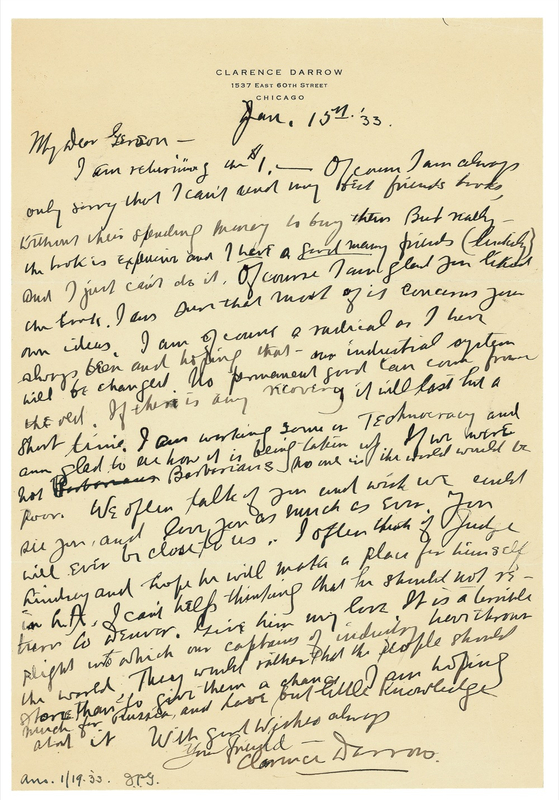 CLARENCE DARROW
1537 EAST 60TH STREET
CHICAGO
Jan. 15th '33.
My Dear Gerson —
I am returning the $1. — Of course I am always
only sorry that I can't send my best friends books,
without their spending money to buy them But really —
the book is expensive and I have a good many friends (luckily)
and I just can't do it. Of course I am glad you liked
the book. I am sure that most of it concerns your
own ideas. I am of course a radical as I have
always been and hoping that — our industrial system
will be changed. No permanent good can come from
the old. If there is any recovery it will last but a
short time. I am working some on Technocracy and
am glad to see how it is being taken up. If we were
not Barbarians no one in the world would be
poor. We often talk of you and wish we could
see you, and love you as much as ever. You
will ever be close to us. I often think of Judge
Lindsey and hope he will make a place for himself
in L.A. I can't help thinking that he should not re-
turn to Denver. Give him my love It is a terrible
plight into which our captains of industry have thrown
the world. They would rather that the people should
starve than to give them a chance. I am hoping
much for Russia, and have but little knowledge
about it With good wishes always
Your friend —
Clarence Darrow.
Ans. 1/19.33. J.P.G.